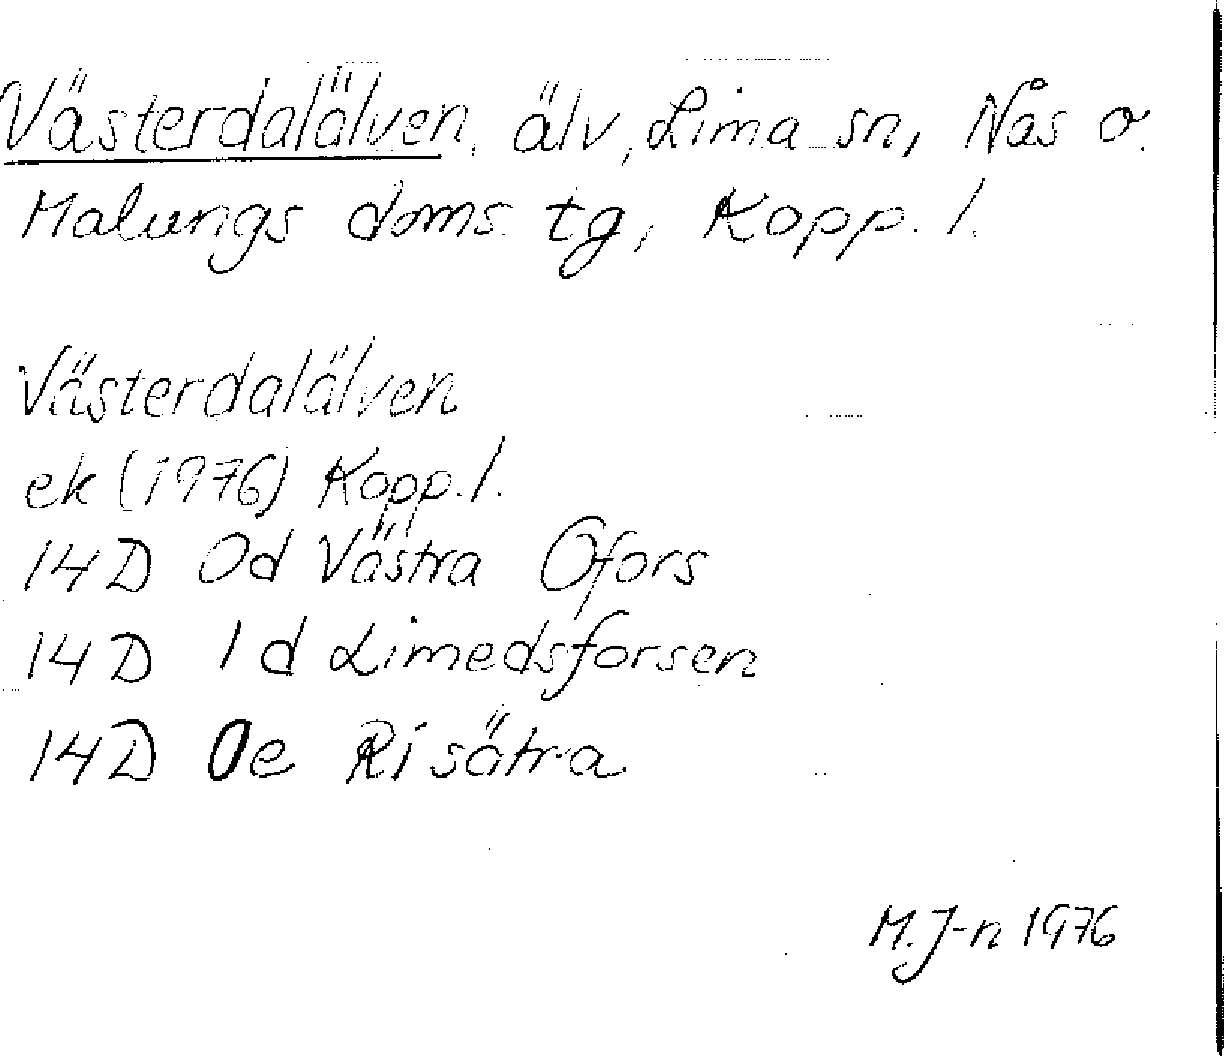 Västerdalälven, älv, Lima sn, Nås o.
Malungs doms. tg, Kopp. l.
Västerdalälven
ek (1976) Kopp. l.
14D 0d Västra Ofors
14D 1d Limedsforsen
14D 0e Risätra
M. J-n 1976